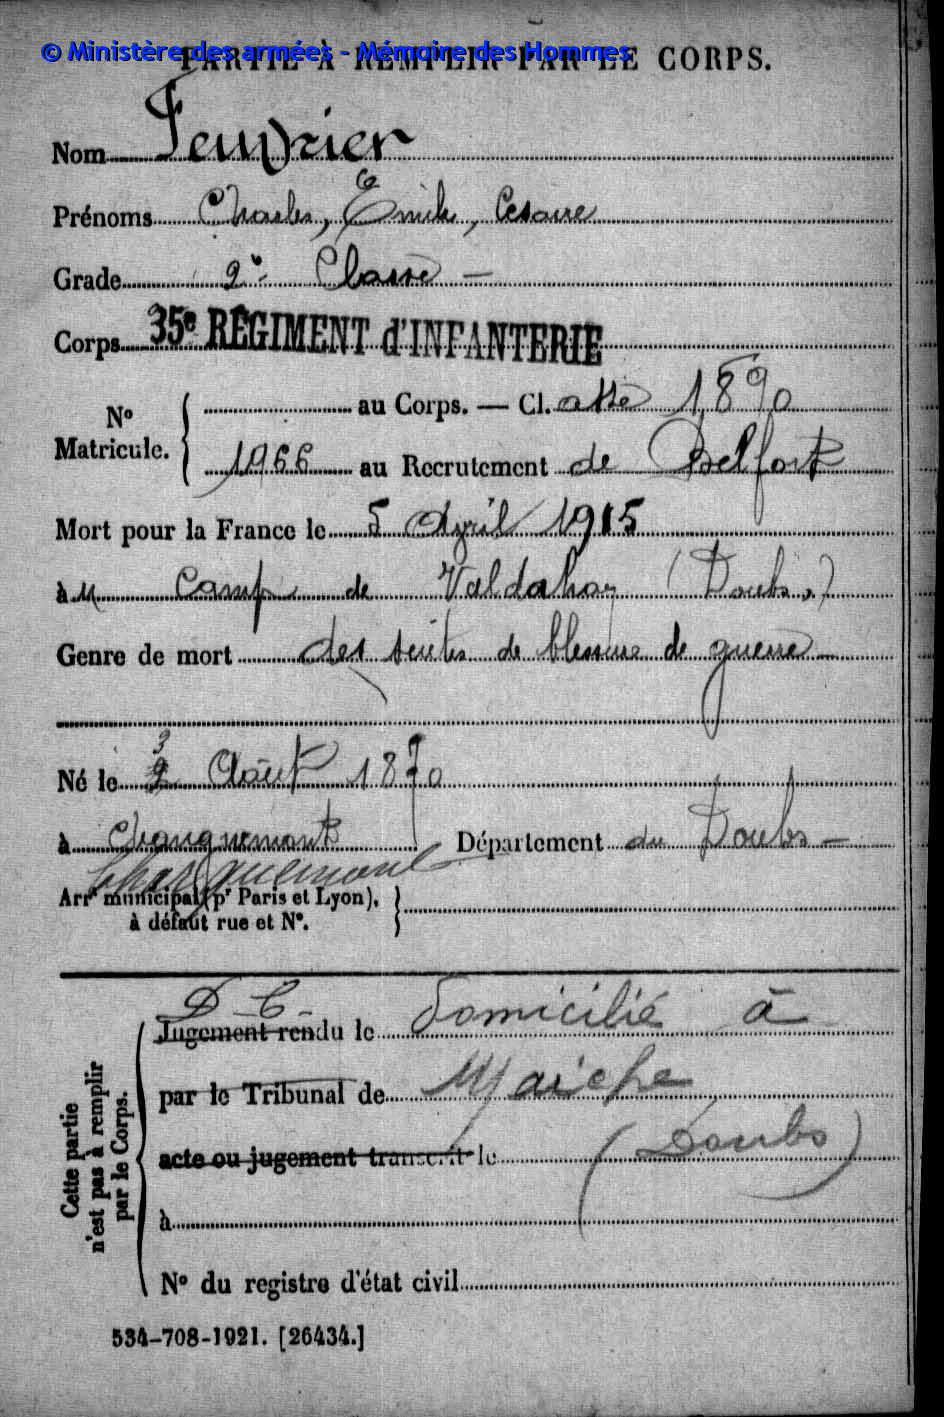 © Ministère des armées - Mémoire des Hommes
PARTIE À REMPLIR PAR LE CORPS.
Nom Feuvrier
Prénoms Charles, Emile, Césaire
Grade 2e Classe -
Corps 35e RÉGIMENT d'INFANTERIE
N° Matricule. { au Corps. — Cl. asse 1890
1966 au Recrutement de Belfort
Mort pour la France le 5 Avril 1915
à u Camp de Valdahon (Doubs.)
Genre de mort des suites de blessure de guerre -
3
Né le 2 Août 1870
à Charquemont Département du Doubs -
Charquemont
Arrt municipal (pr Paris et Lyon),
à défaut rue et N°.
D - C -
Jugement rendu le domicilié à
par le Tribunal de Maiche
acte ou jugement transcrit le (Doubs)
à
N° du registre d'état civil
Cette partie
n'est pas à remplir
par le Corps.
534-708-1921. [26434.]